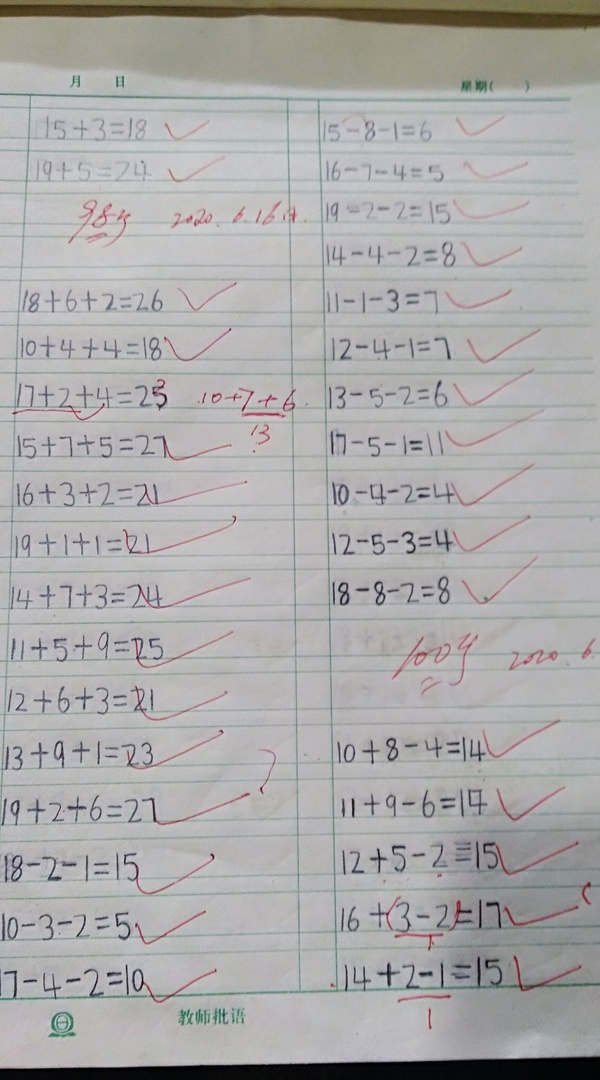 月 日
15+3=18
19+5=24
98分 2020.6.16.
18+6+2=26
10+4+4=18
17+2+4=23 10+7+6
13
15+7+5=27
16+3+2=21
19+1+1=21
14+7+3=24
11+5+9=25
12+6+3=21
13+9+1=23
19+2+6=27
18-2-1=15
10-3-2=5
17-4-2=10
教师批语
星期( )
15-8-1=6
16-7-4=5
19-2-2=15
14-4-2=8
11-1-3=7
12-4-1=7
13-5-2=6
17-5-1=11
10-4-2=4
12-5-3=4
18-8-2=8
100分 2020.6.
10+8-4=14
11+9-6=14
12+5-2=15
16+(3-2)=17
1
14+2-1=15
1